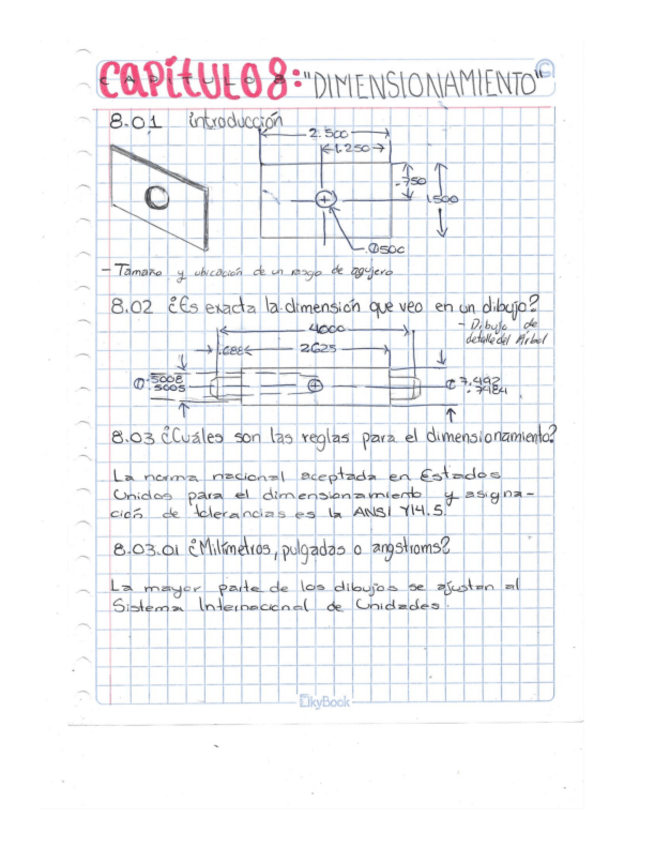 CAPÍTULO 8: "DIMENSIONAMIENTO"
8.01 introducción
2.500
1.250
.750
1.500
Ø.500
- Tamaño y ubicación de un rasgo de agujero
8.02 ¿Es exacta la dimensión que veo en un dibujo?
- Dibujo de
detalle del Árbol
4.000
.688
2.625
.5008
.5005
.7492
.7484
8.03 ¿Cuáles son las reglas para el dimensionamiento?
La norma nacional aceptada en Estados
Unidos para el dimensionamiento y asigna-
ción de tolerancias es la ANSI Y14.5.
8.03.01 ¿Milímetros, pulgadas o angstroms?
La mayor parte de los dibujos se ajustan al
Sistema Internacional de Unidades.
SkyBook